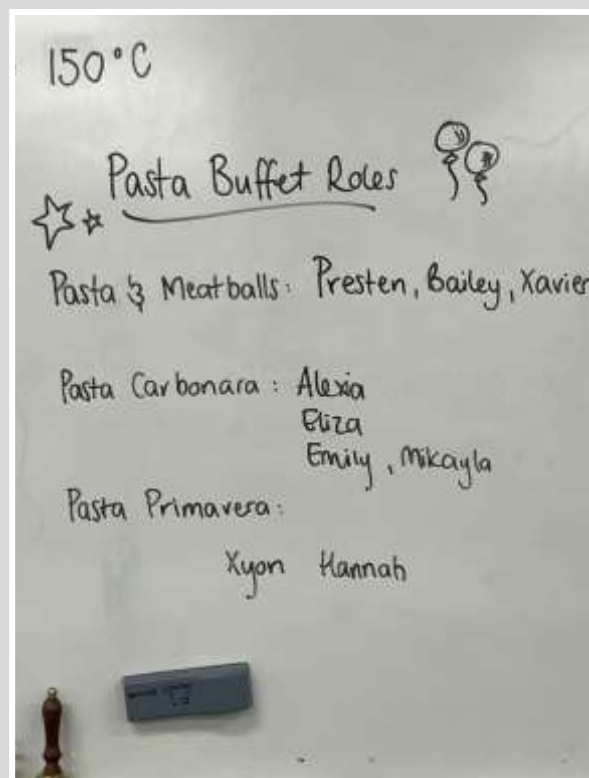 150°C
Pasta Buffet Roles
Pasta & Meatballs: Presten, Bailey, Xavier
Pasta Carbonara: Alexia
Eliza
Emily, Mikayla
Pasta Primavera:
Xyon Hannah